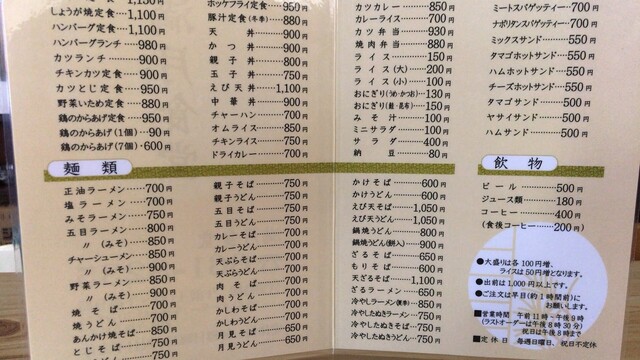 しょうが焼定食…1,100円
ハンバーグ定食…1,100円
ハンバーグランチ……980円
カツランチ………900円
チキンカツ定食……900円
カツとじ定食……950円
野菜いため定食……880円
鶏のからあげ定食……950円
鶏のからあげ(1個)……90円
鶏のからあげ(7個)…600円
ホッケフライ定食…950円
豚汁定食(冬季)……880円
天丼………900円
かつ丼………900円
親子丼………800円
玉子丼………750円
えび天丼……1,100円
中華丼………900円
チャーハン………700円
オムライス………850円
チキンライス………750円
ドライカレー………700円
カツカレー………850円
カレーライス………700円
カツ弁当………930円
焼肉弁当………880円
ライス………150円
ライス(大)……200円
ライス(小)……100円
おにぎり(うめ・かつお)…130円
おにぎり(鮭・昆布)……150円
みそ汁………100円
ミニサラダ………100円
サラダ………400円
納豆………80円
ミートスパゲッティー……700円
ナポリタンスパゲッティー…700円
ミックスサンド………550円
タマゴホットサンド……550円
ハムホットサンド………550円
チーズホットサンド……550円
タマゴサンド………500円
ヤサイサンド………500円
ハムサンド………500円
麺類
正油ラーメン……700円
塩ラーメン………700円
みそラーメン……750円
五目ラーメン……800円
〃(みそ)……850円
チャーシューメン……850円
〃(みそ)……900円
野菜ラーメン……850円
〃(みそ)……900円
焼そば………700円
焼うどん………700円
あんかけ焼そば……850円
とじそば………750円
親子そば………750円
親子うどん………750円
五目そば………750円
五目うどん………750円
カレーそば………700円
カレーうどん………700円
天ぷらそば………700円
天ぷらうどん………700円
肉そば………700円
肉うどん………700円
かしわそば………700円
かしわうどん………700円
月見そば………650円
月見うどん………650円
かけそば………600円
かけうどん………600円
えび天そば……1,050円
えび天うどん…1,050円
鍋焼うどん………800円
鍋焼うどん(餅入)…900円
ざるそば………650円
もりそば………600円
天ざるそば……1,100円
ざるラーメン………650円
冷やしラーメン(夏季)…850円
冷やしたぬきラーメン…750円
冷やしたぬきそば……750円
飲物
ビール………500円
ジュース類………180円
コーヒー………400円
(食後コーヒー………200円)
●大盛りは各100円増、
ライスは50円増となります。
●出前は1,000円以上です。
●ご注文は早目(約1時間前)に
お願いします。
■営業時間 午前11時〜午後9時
(ラストオーダーは午後8時30分)
祝日は午後8時まで
■定休日 毎週日曜日、祝日不定休